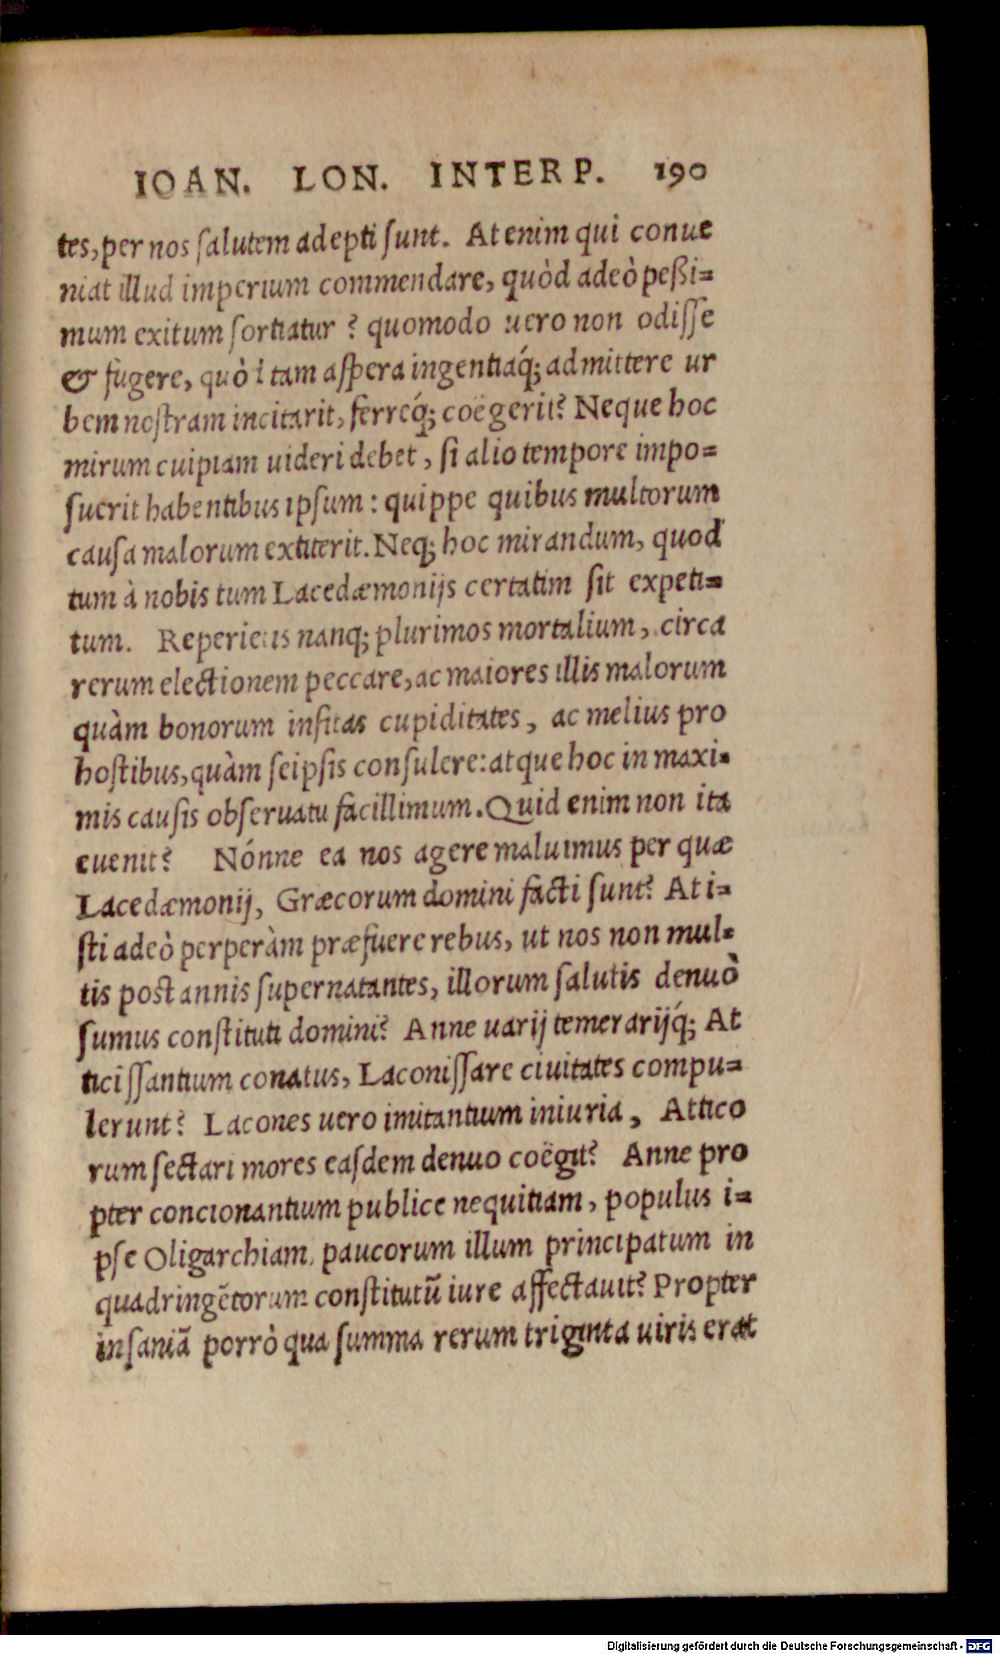 IOAN. LON. INTERP. 190
tes, per nos salutem adepti sunt. At enim qui conue
niat illud imperium commendare, quòd adeò peßi=
mum exitum sortiatur? quomodo uero non odisse
& fugere, quòd tam aspera ingentiaq́; admittere ur
bem nostram incitarit, ferreq́; coëgerit? Neque hoc
mirum cuipiam uideri debet, si alio tempore impo=
suerit habentibus ipsum: quippe quibus multorum
causa malorum extiterit. Neq; hoc mirandum, quod
tum à nobis tum Lacedæmonijs certatim sit expeti=
tum. Reperietis nanq; plurimos mortalium, circa
rerum electionem peccare, ac maiores illis malorum
quàm bonorum insitas cupiditates, ac melius pro
hostibus, quàm seipsis consulere: atque hoc in maxi=
mis causis obseruatu facillimum. Quid enim non ita
euenit? Nónne ea nos agere maluimus per quæ
Lacedæmonij, Græcorum domini facti sunt? At i=
sti adeò perperàm præfuere rebus, ut nos non mul=
tis post annis supernatantes, illorum salutis denuò
sumus constituti domini? Anne uarij temerarijq́; At
ticissantium conatus, Laconissare ciuitates compu=
lerunt? Lacones uero imitantium iniuria, Attico
rum sectari mores easdem denuo coëgit? Anne pro
pter concionantium publice nequitiam, populus i=
pse Oligarchiam, paucorum illum principatum in
quadringētorum constitutū iure affectauit? Propter
insaniā porrò qua summa rerum triginta uiris erat
Digitalisierung gefördert durch die Deutsche Forschungsgemeinschaft - DFG